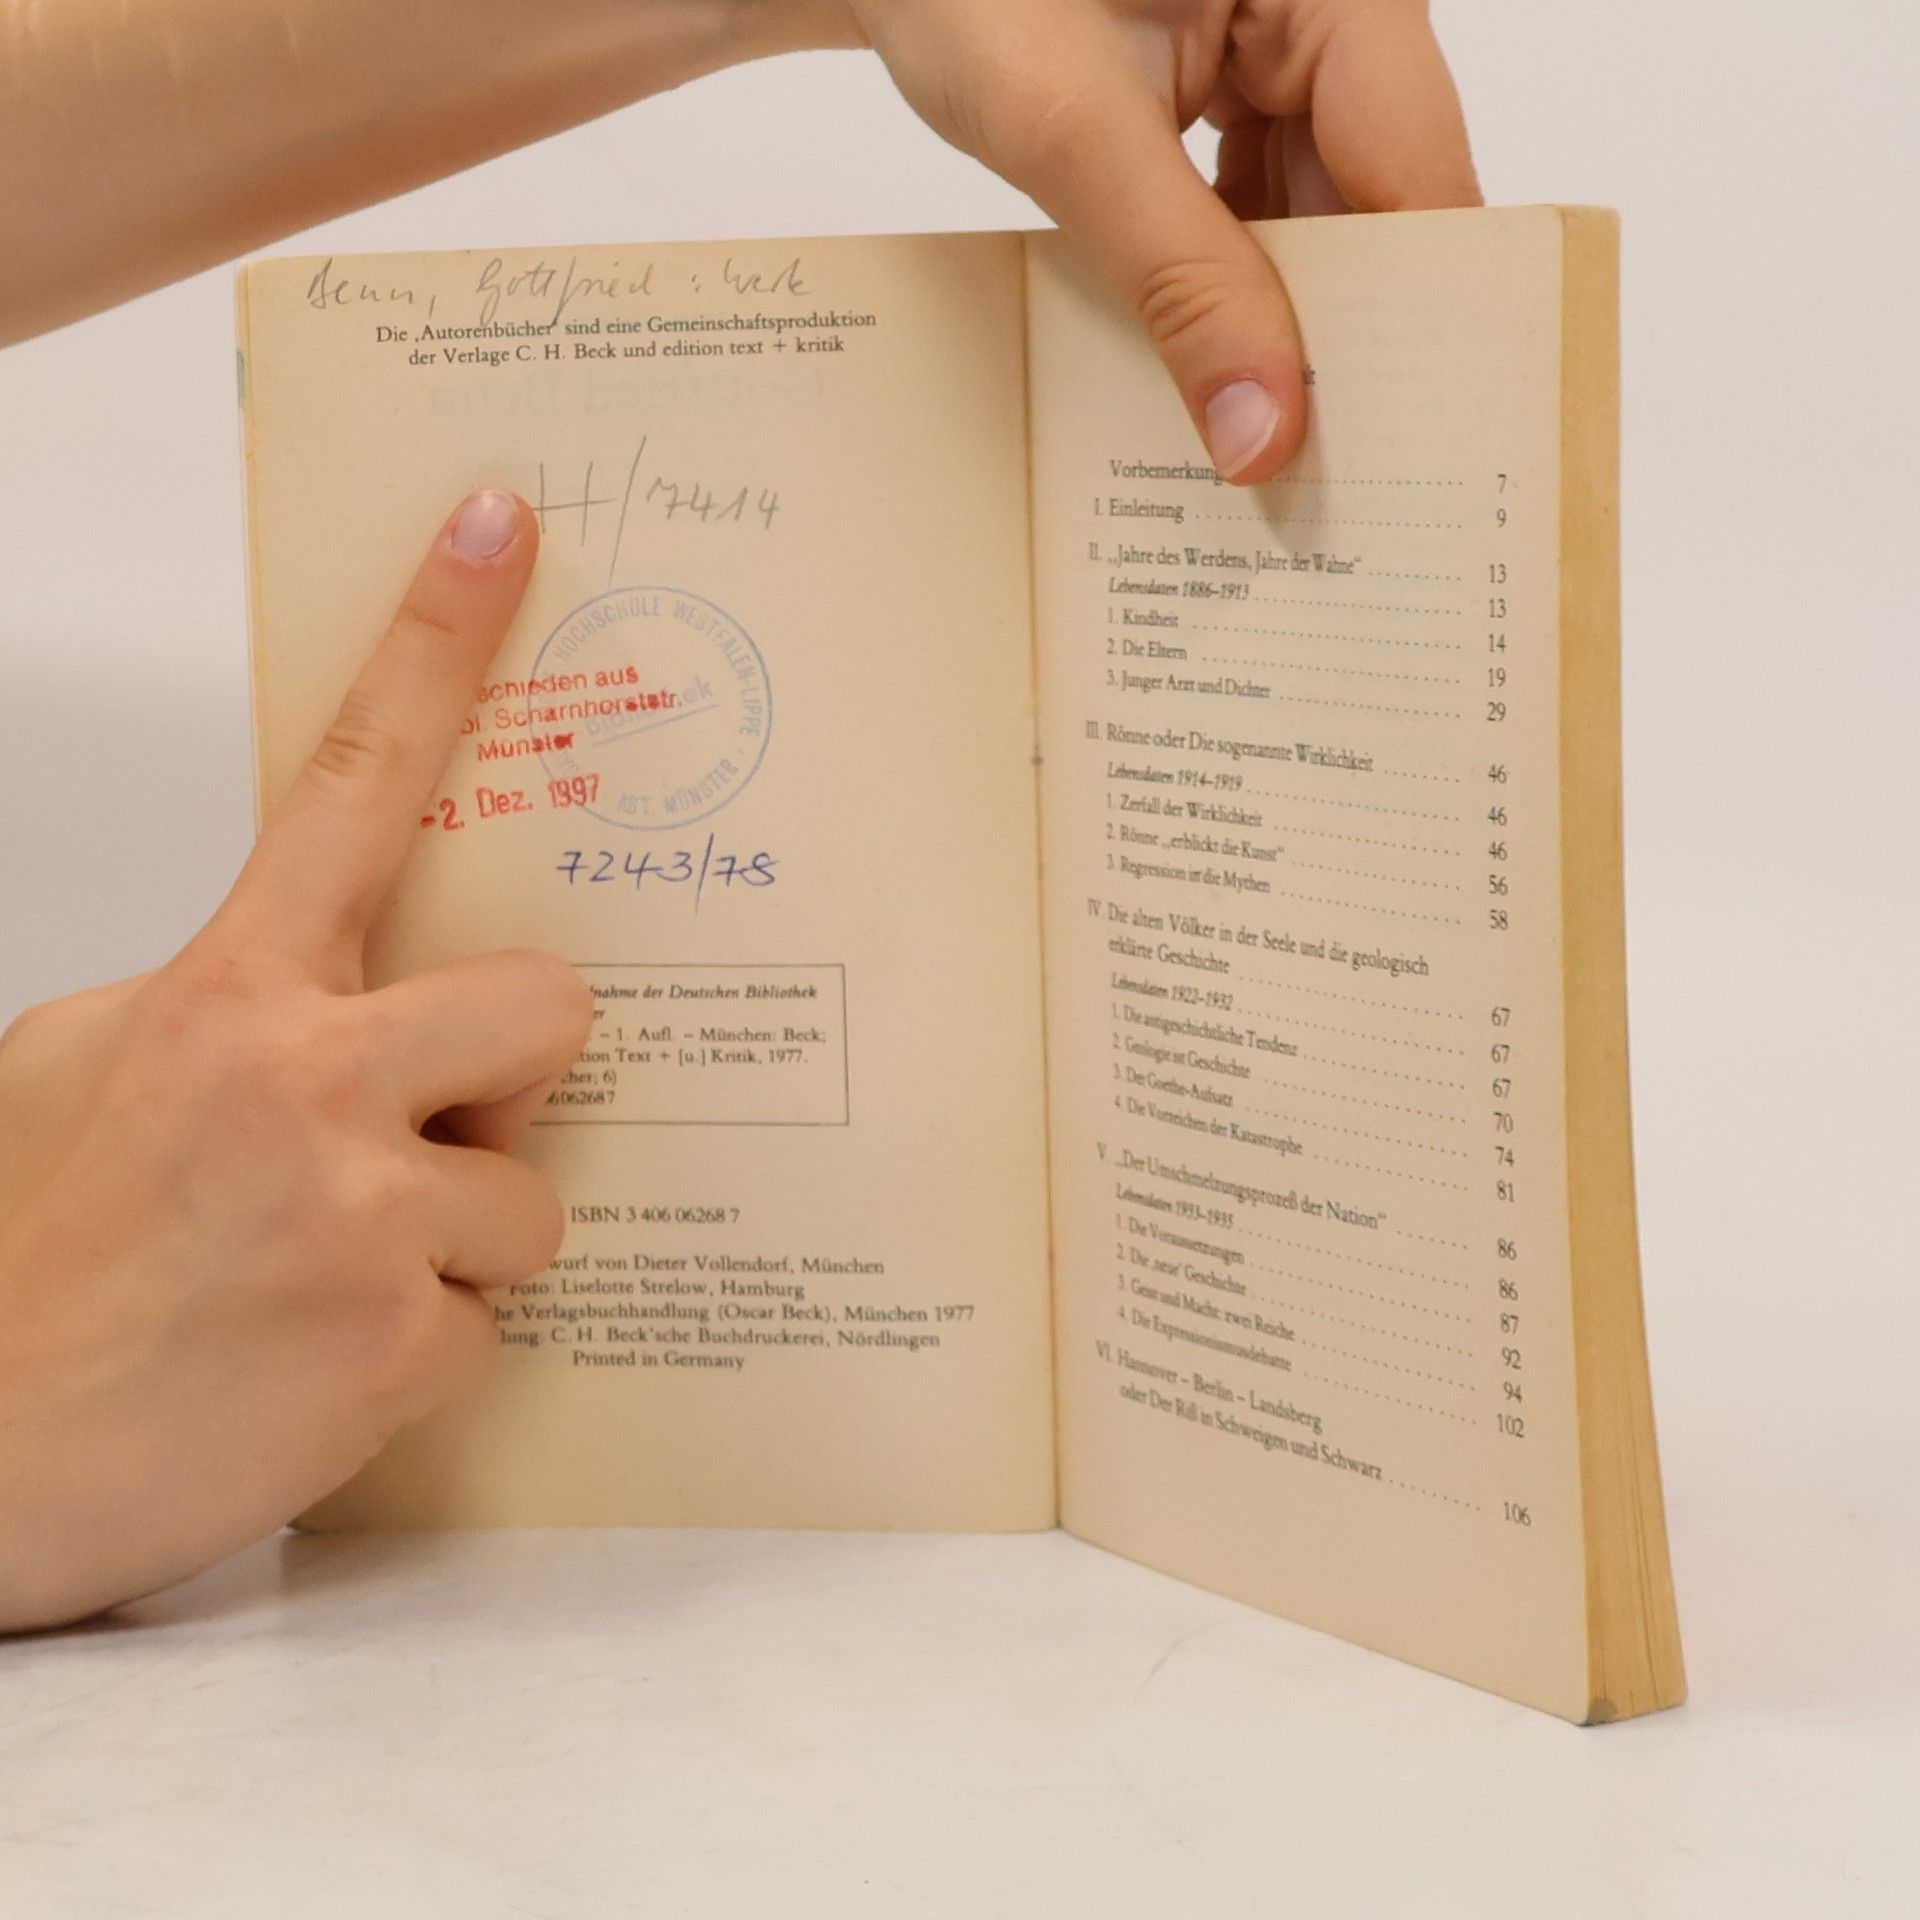 Benn, Gottfried : Werk
Die ‚Autorenbücher‘ sind eine Gemeinschaftsproduktion
der Verlage C. H. Beck und edition text + kritik
H/7414
HOCHSCHULE WESTFALEN-LIPPE
Bibliothek
ABT. MÜNSTER
schieden aus
bl. Scharnhorststr.
Münster
-2. Dez. 1997
7243/78
nahme der Deutschen Bibliothek
er
. – 1. Aufl. – München: Beck;
tion Text + [u.] Kritik, 1977.
cher; 6)
6062687
ISBN 3 406 06268 7
wurf von Dieter Vollendorf, München
Foto: Liselotte Strelow, Hamburg
he Verlagsbuchhandlung (Oscar Beck), München 1977
lung: C. H. Beck'sche Buchdruckerei, Nördlingen
Printed in Germany
Vorbemerkung 7
I. Einleitung 9
II. „Jahre des Werdens, Jahre der Wahne“ 13
Lebensdaten 1886–1913 13
1. Kindheit 14
2. Die Eltern 19
3. Junger Arzt und Dichter 29
III. Rönne oder Die sogenannte Wirklichkeit 46
Lebensdaten 1914–1919 46
1. Zerfall der Wirklichkeit 46
2. Rönne „erblickt die Kunst“ 56
3. Regression in die Mythen 58
IV. Die alten Völker in der Seele und die geologisch
erklärte Geschichte 67
Lebensdaten 1922–1932 67
1. Die antigeschichtliche Tendenz 67
2. Geologie ist Geschichte 70
3. Der Goethe-Aufsatz 74
4. Die Vorzeichen der Katastrophe 81
V. „Der Umschmelzungsprozeß der Nation“ 86
Lebensdaten 1933–1935 86
1. Die Voraussetzungen 87
2. Die ‚neue‘ Geschichte 92
3. Geist und Macht: zwei Reiche 94
4. Die Expressionismusdebatte 102
VI. Hannover – Berlin – Landsberg
oder Der Riß in Schweigen und Schwarz 106